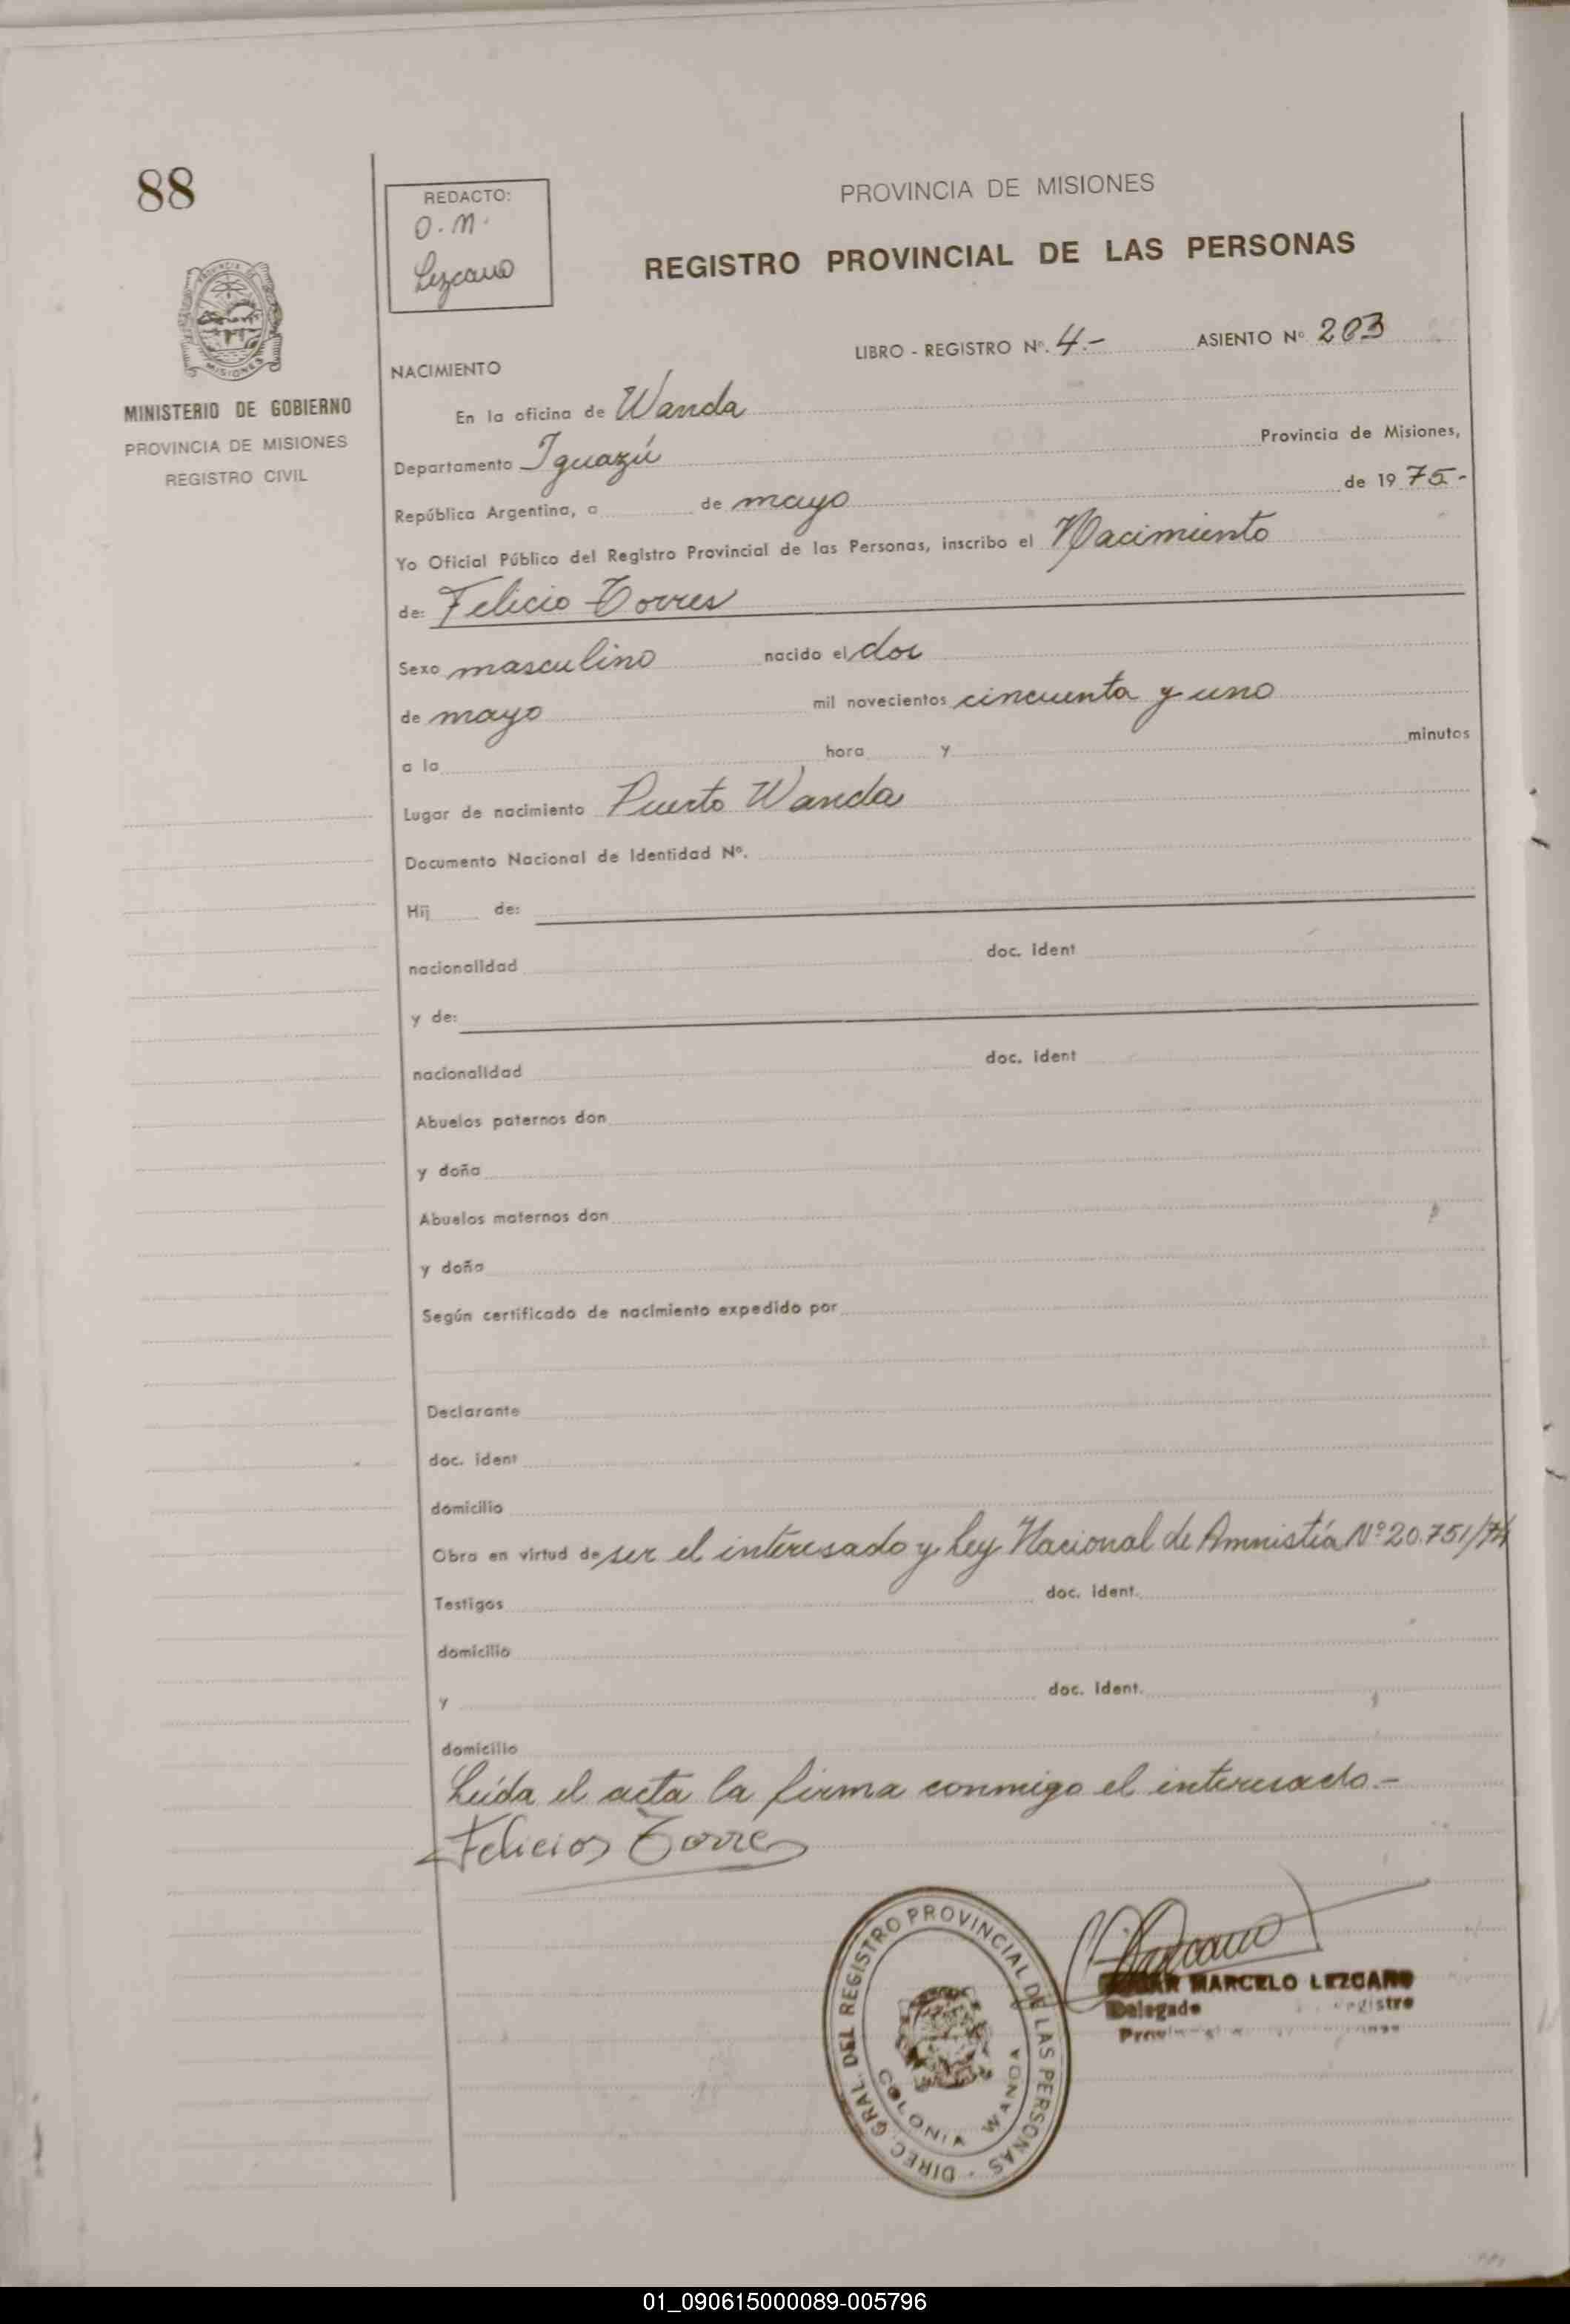 88
REDACTO:
O. M.
Lezcano
PROVINCIA DE MISIONES
REGISTRO PROVINCIAL DE LAS PERSONAS
PROVINCIA DE
MISIONES
MINISTERIO DE GOBIERNO
PROVINCIA DE MISIONES
REGISTRO CIVIL
LIBRO - REGISTRO Nº. 4.- ASIENTO Nº 203
NACIMIENTO
En la oficina de Wanda
Departamento Iguazú Provincia de Misiones,
República Argentina, a de mayo de 19 75-
Yo Oficial Público del Registro Provincial de las Personas, inscribo el Nacimiento
de: Felicio Torres
Sexo masculino nacido el dos
de mayo mil novecientos cincuenta y uno
a la hora y minutos
Lugar de nacimiento Puerto Wanda
Documento Nacional de Identidad Nº.
Hij de:
nacionalidad doc. ident
y de:
nacionalidad doc. ident
Abuelos paternos don
y doña
Abuelos maternos don
y doña
Según certificado de nacimiento expedido por
Declarante
doc. ident
domicilio
Obra en virtud de ser el interesado y Ley Nacional de Amnistía Nº 20.751/74
Testigos doc. ident.
domicilio
y doc. ident.
domicilio
Leída el acta la firma conmigo el interesado.-
Felicios Torres
DIREC. GRAL. DEL REGISTRO PROVINCIAL DE LAS PERSONAS
COLONIA WANDA
MARCELO LEZCANO
Delegado Registro
01_090615000089-005796